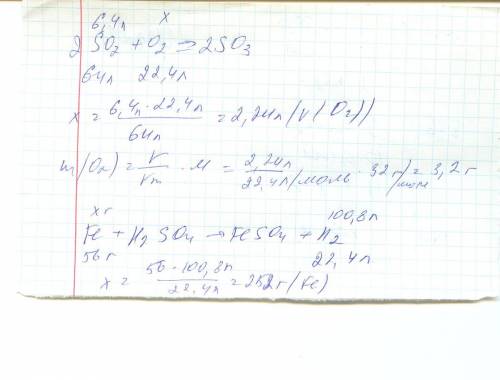 6,4л x
2SO₂ + O₂ = 2SO₃
64л 22,4л
x = 6,4л · 22,4л / 64л = 2,24л (V(O₂))
m(O₂) = V/Vm · M = 2,24л / 22,4л/моль · 32 г/моль = 3,2 г
x г 100,8л
Fe + H₂SO₄ → FeSO₄ + H₂
56 г 22,4л
x = 56 · 100,8л / 22,4л = 252г (Fe)